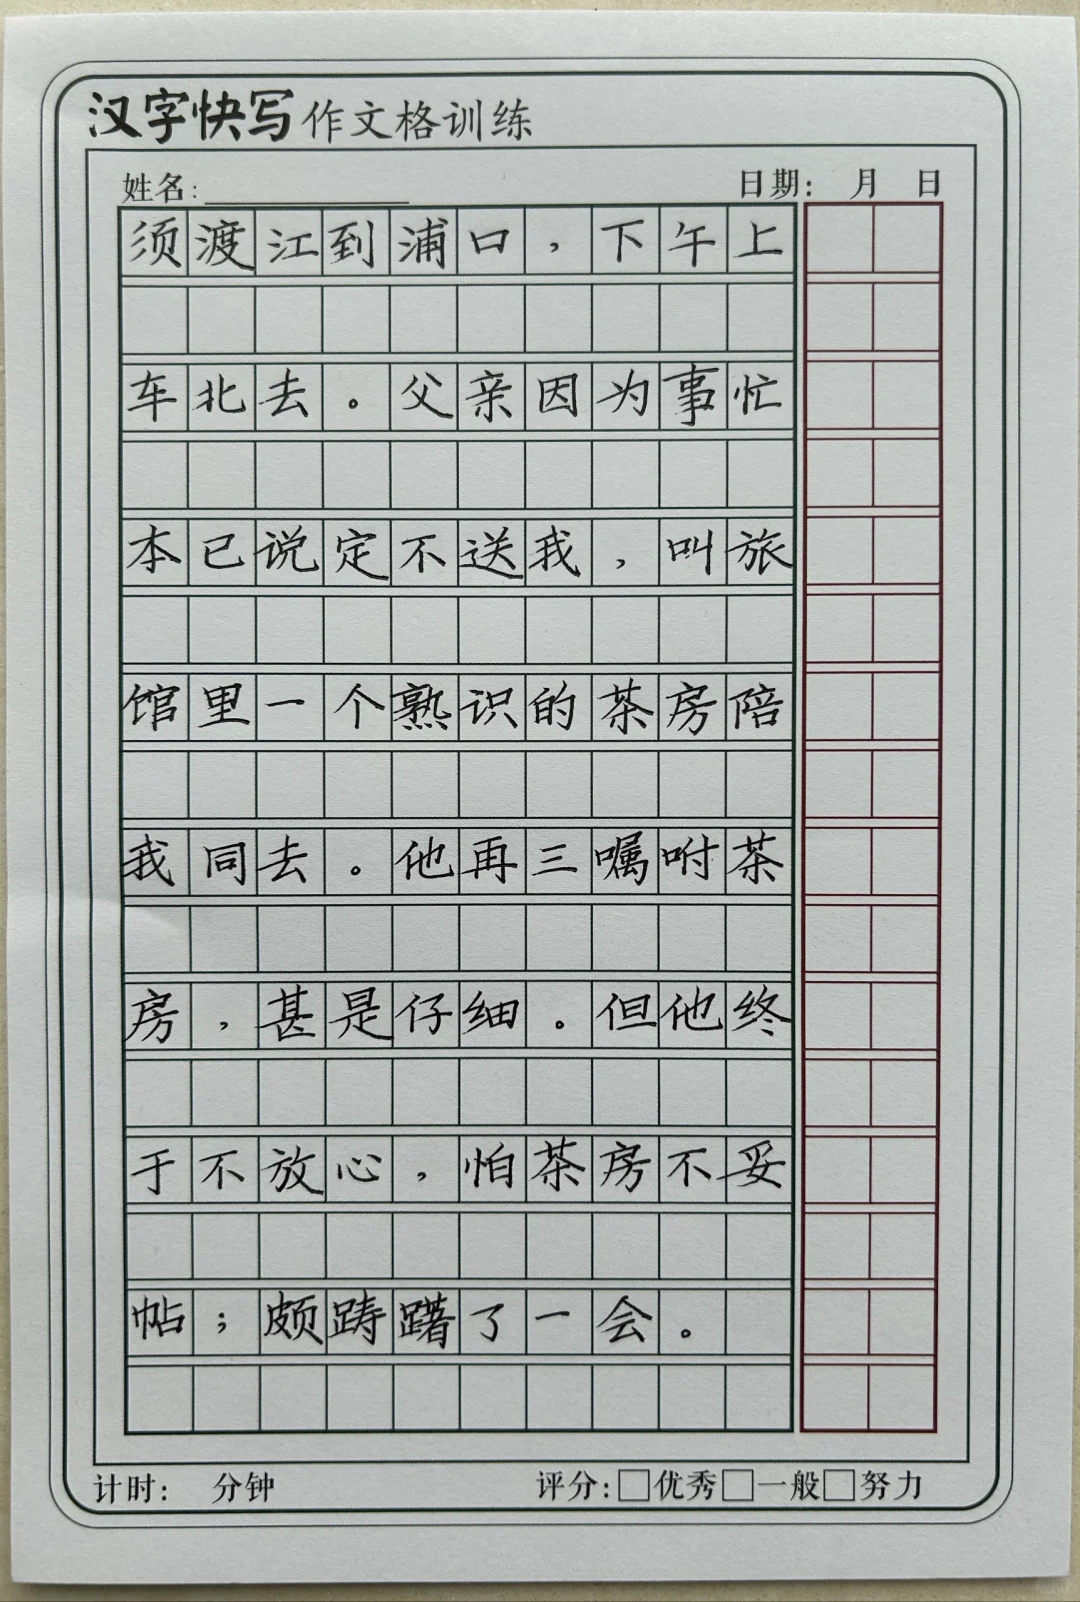 汉字快写 作文格训练
姓名: 日期: 月 日
须渡江到浦口，下午上
车北去。父亲因为事忙
本已说定不送我，叫旅
馆里一个熟识的茶房陪
我同去。他再三嘱咐茶
房，甚是仔细。但他终
于不放心，怕茶房不妥
帖；颇踌躇了一会。
计时: 分钟 评分:□优秀□一般□努力